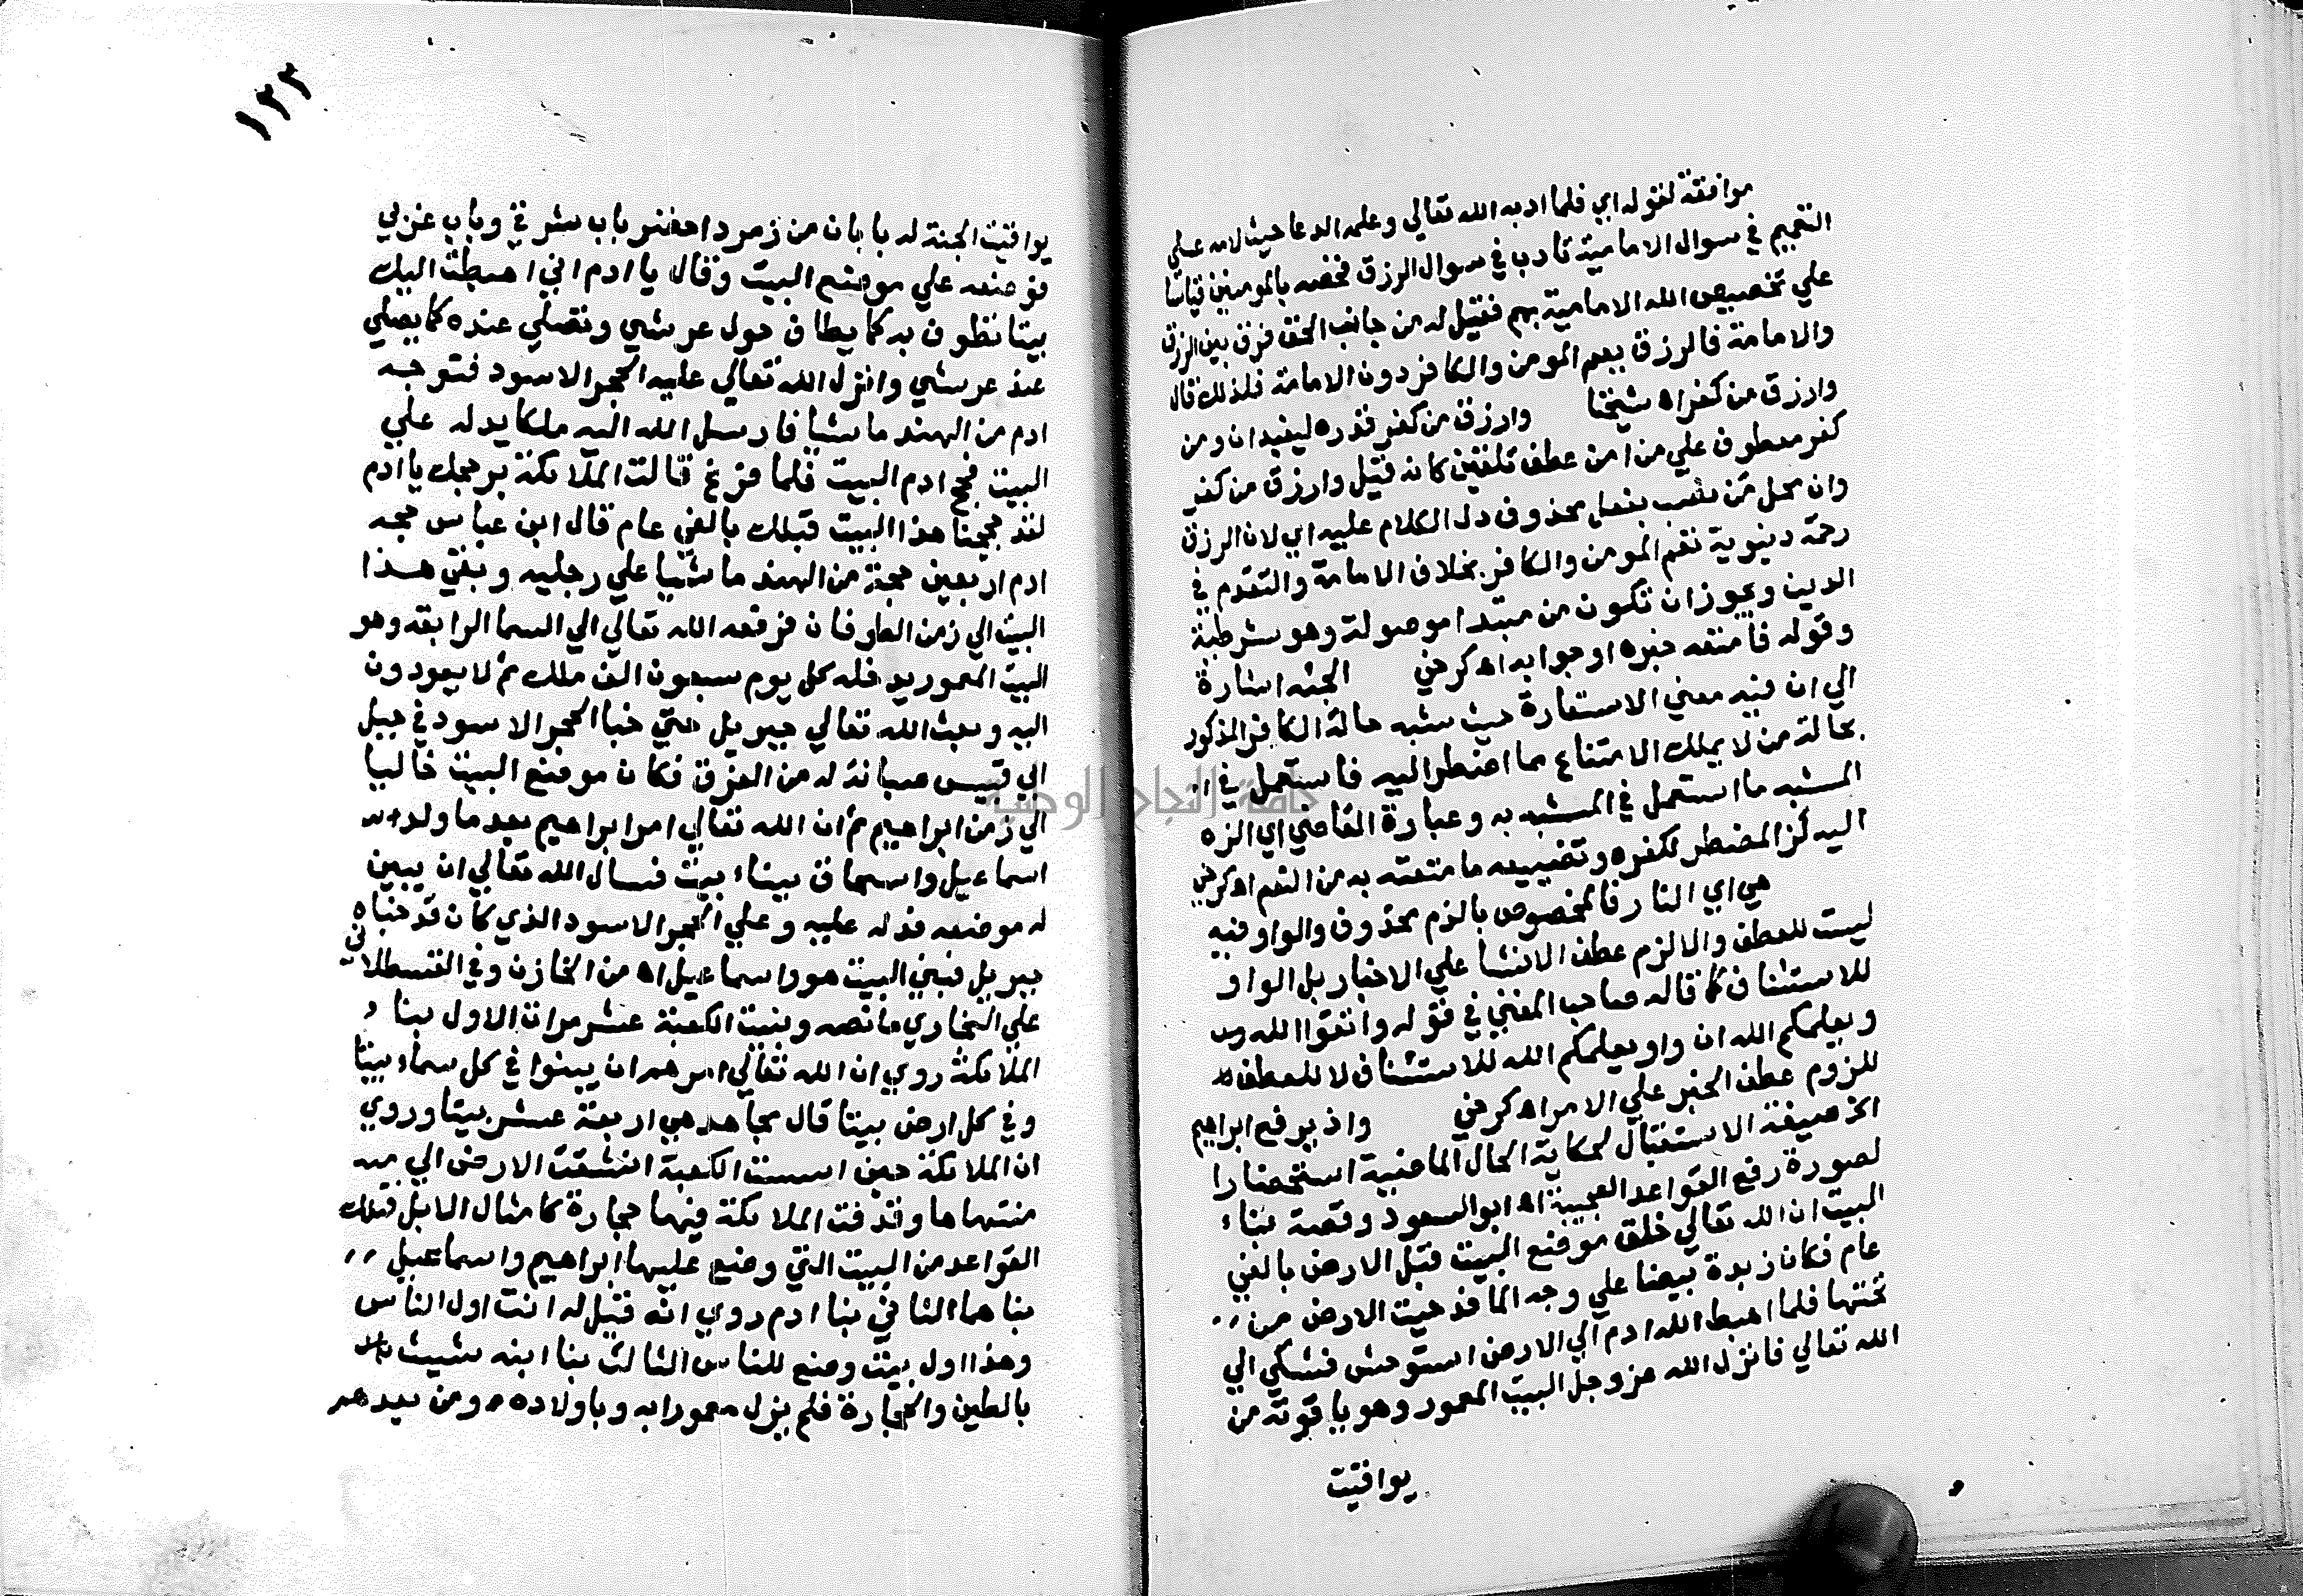 موافقة لقوله اي فلما ادبه الله تعالي وعلمه الدعا حيث لامه علي
التعميم في سوال الامامية تادب في سوال الرزق فخصه بالمومنين قياسا
علي تخصيص الله الامامية بهم فقيل له من جانب الحق فرق بين الرزق
والامامة فالرزق يعم المومن والكافر دون الامامة فلذلك قال
وارزق من كفر اه شيخنا وارزق من كفر قدره ليفيد ان ومن
كفر معطوف علي من امن عطف تلقين كانه قيل وارزق من كفر
وان محل من نصب بفعل محذوف دل الكلام عليه اي لان الرزق
رحمة دنيوية تعم المومن والكافر بخلاف الامامة والتقدم في
الدين ويجوز ان تكون من مبتدا موصولة وهو شرطية
وقوله فامتعه خبره او جوابه اه كرخي الجئه اشارة
الي ان فيه معني الاستعارة حيث شبه حالة الكافر المذكور
بحالة من لا يملك الامتناع مما اضطر اليه فاستعمل في
المشبه ما استعمل في المشبه به وعبارة القاضي اي الزه
اليه لز المضطر لكفره وتضييعه ما متعته به من النعم اه كرخي
هي اي النار فالمخصوص بالذم محذوف والواو فيه
ليست للعطف والا لزم عطف الانشا علي الاخبار بل الواو
للاستئناف كما قاله صاحب المغني في قوله واتقوا الله
ويعلمكم الله ان واو يعلمكم الله للاستئناف لا للعطف
للزوم عطف الخبر علي الامر اه كرخي واذ يرفع ابراهيم
الخ صيغة الاستقبال لحكاية الحال الماضية استحضارا
لصورة رفع القواعد العجيبة اه ابو السعود وقصة بناء
البيت ان الله تعالي خلق موضع البيت قبل الارض بالفي
عام فكان زبدة بيضا علي وجه الما فدحيت الارض من
تحتها فلما اهبط الله ادم الي الارض استوحش فشكي الي
الله تعالي فانزل الله عز وجل البيت المعمور وهو ياقوتة من
يواقيت
١٢٣
يواقيت الجنة له بابان من زمرد اخضر باب شرقي وباب غربي
فوضعه علي موضع البيت وقال يا ادم اني اهبطت اليك
بيتا تطوف به كما يطاف حول عرشي وتصلي عنده كما يصلي
عند عرشي وانزل الله تعالي عليه الحجر الاسود فتوجه
ادم من الهند ماشيا فارسل الله اليه ملكا يدله علي
البيت فحج ادم البيت فلما فرغ قالت الملائكة بر حجك يا ادم
لقد حججنا هذا البيت قبلك بالفي عام قال ابن عباس حج
ادم اربعين حجة من الهند ماشيا علي رجليه وبقي هذا
البيت الي زمن الطوفان فرفعه الله تعالي الي السما الرابعة وهو
البيت المعمور يدخله كل يوم سبعون الف ملك ثم لا يعودون
اليه وبعث الله تعالي جبريل حتي خبا الحجر الاسود في جبل
ابي قبيس صيانة له من الغرق فكان موضع البيت خاليا
الي زمن ابراهيم ثم ان الله تعالي امر ابراهيم بعد ما ولد له
اسماعيل واسحاق ببناء بيت فسال الله تعالي ان يبين
له موضعه فدله عليه وعلي الحجر الاسود الذي كان قد خباه
جبريل فبني البيت هو واسماعيل اه من الخازن وفي القسطلاني
علي البخاري ما نصه وبنيت الكعبة عشر مرات الاول بناء
الملائكة روي ان الله تعالي امرهم ان يبنوا في كل سماء بيتا
وفي كل ارض بيتا قال مجاهد هي اربعة عشر بيتا وروي
ان الملائكة حين اسست الكعبة انشقت الارض الي
منتهاها وقذفت الملائكة فيها حجارة كامثال الابل فتلك
القواعد من البيت التي وضع عليها ابراهيم واسماعيل
بناهما الثاني بنا ادم روي انه قيل له انت اول الناس
وهذا اول بيت وضع للناس الثالث بنا ابنه شيث
بالطين والحجارة فلم يزل معمورا به وباولاده ومن بعدهم
جامعة النجاح الوطنية